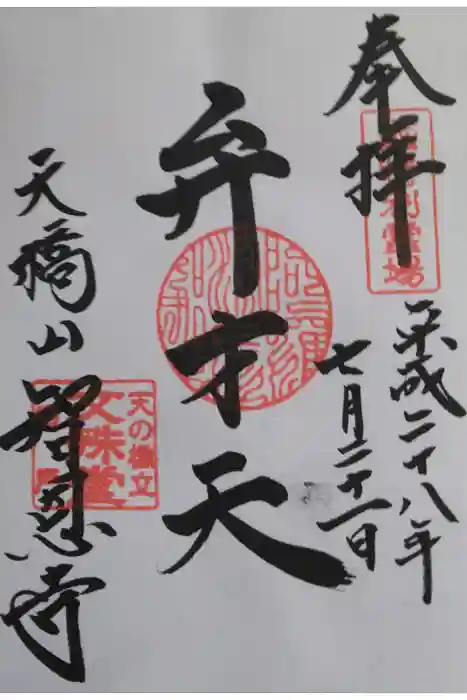 奉拝
平成二十八年
七月二十一日
弁才天
天橋山
智恩寺
天の橋立
文殊堂